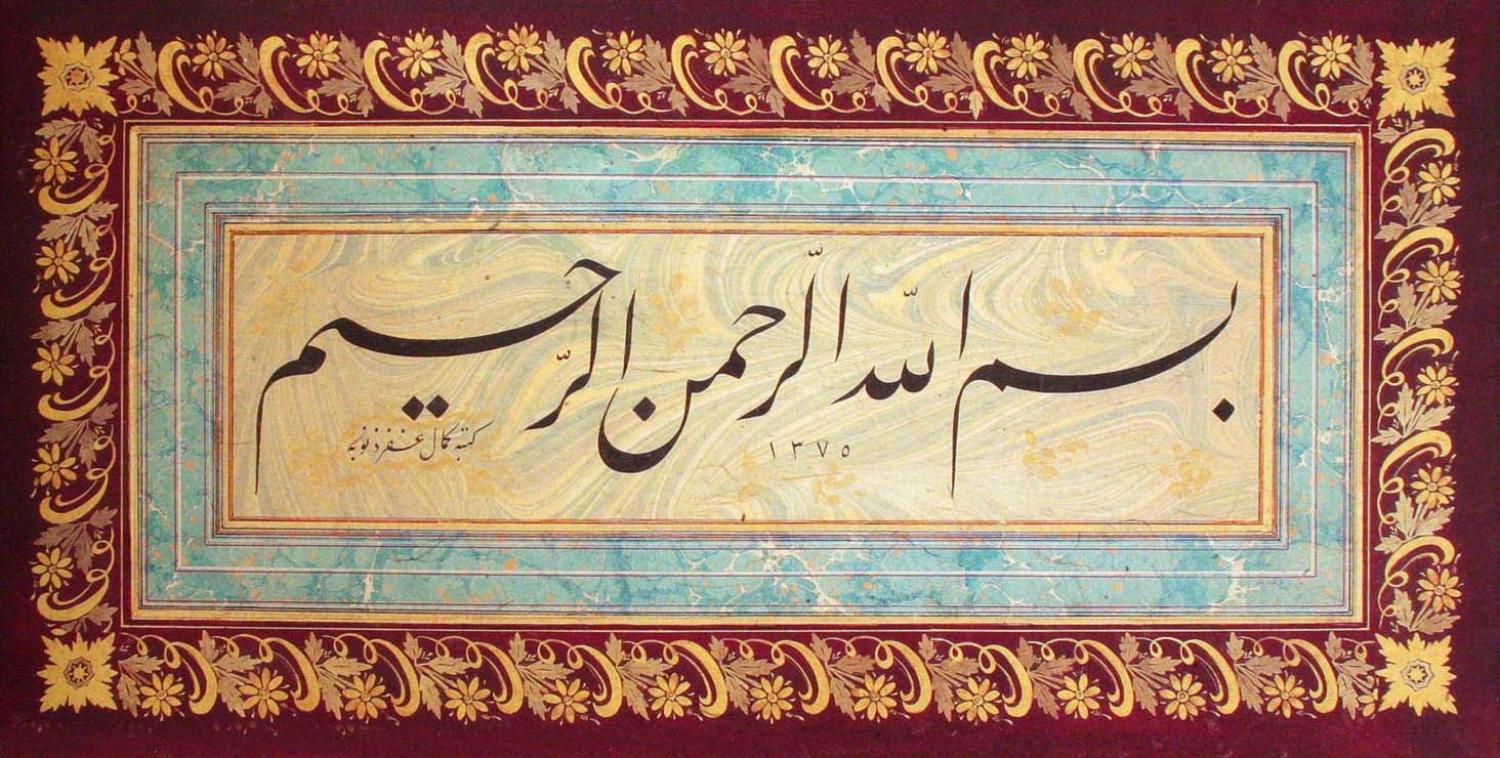 بسم الله الرحمن الرحيم
١٣٧٥
كتبه كمال غفر ذنوبه